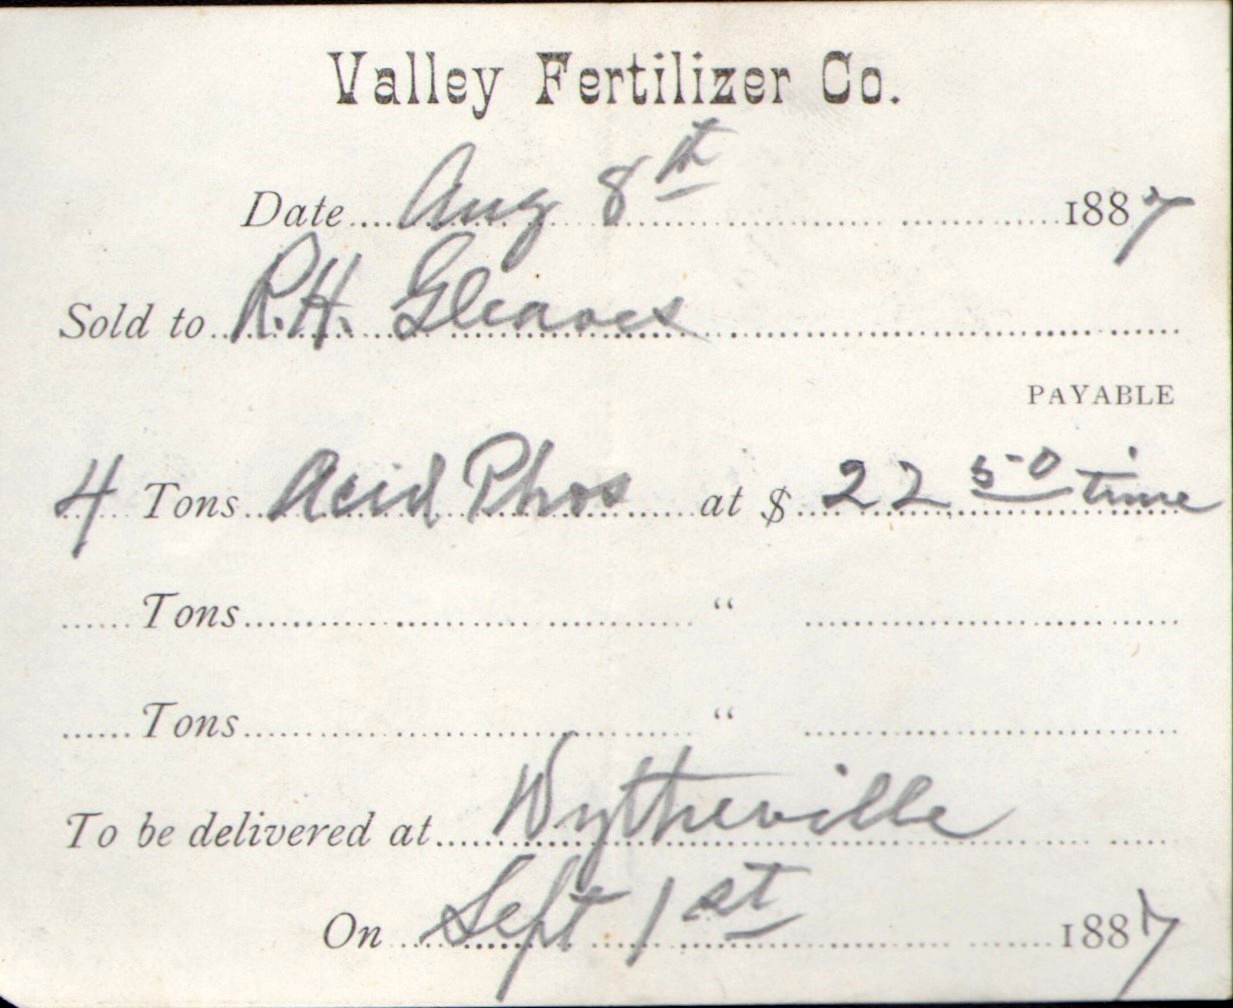 Valley Fertilizer Co.
Date Aug 8th 1887
Sold to R.H. Gleaves
PAYABLE
4 Tons Acid Phos at $ 22 50 time
Tons "
Tons "
To be delivered at Wytheville
On Sept 1st 1887